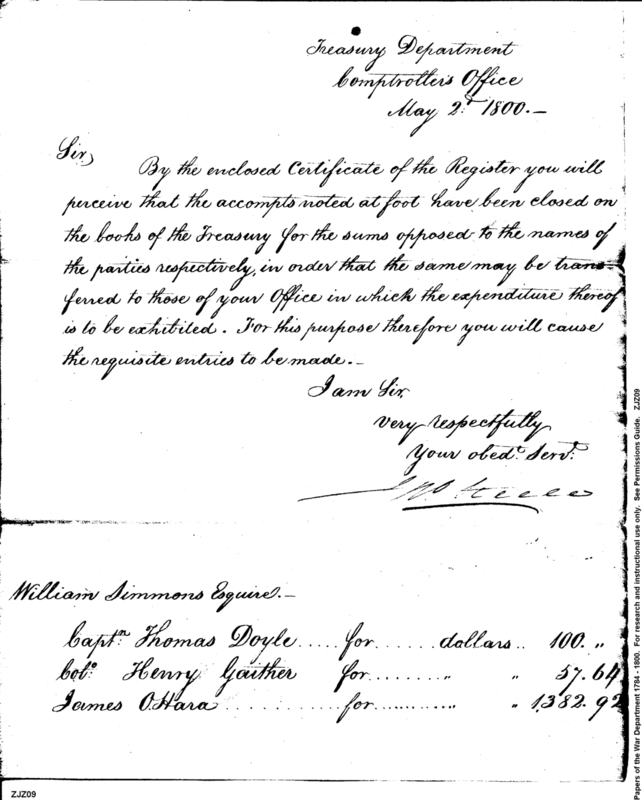 Treasury Department
Comptrollers Office
May 2.d 1800.—
Sir,
By the enclosed Certificate of the Register you will
perceive that the accompts noted at foot have been closed on
the books of the Treasury for the sums opposed to the names of
the parties respectively, in order that the same may be trans-
ferred to those of your Office in which the expenditure thereof
is to be exhibited. For this purpose therefore you will cause
the requisite entries to be made.—
I am Sir,
very respectfully
Your obed.t Serv.t
Jno. Steele
William Simmons Esquire.—
Capt.n Thomas Doyle ..... for ....... dollars .. 100. „
Col.o Henry Gaither for ......... „ „ 57.64
James O.Hara ............ for ............ „ „ 1,382.92
Papers of the War Department 1784 - 1800. For research and instructional use only. See Permissions Guide. ZJZ09
ZJZ09